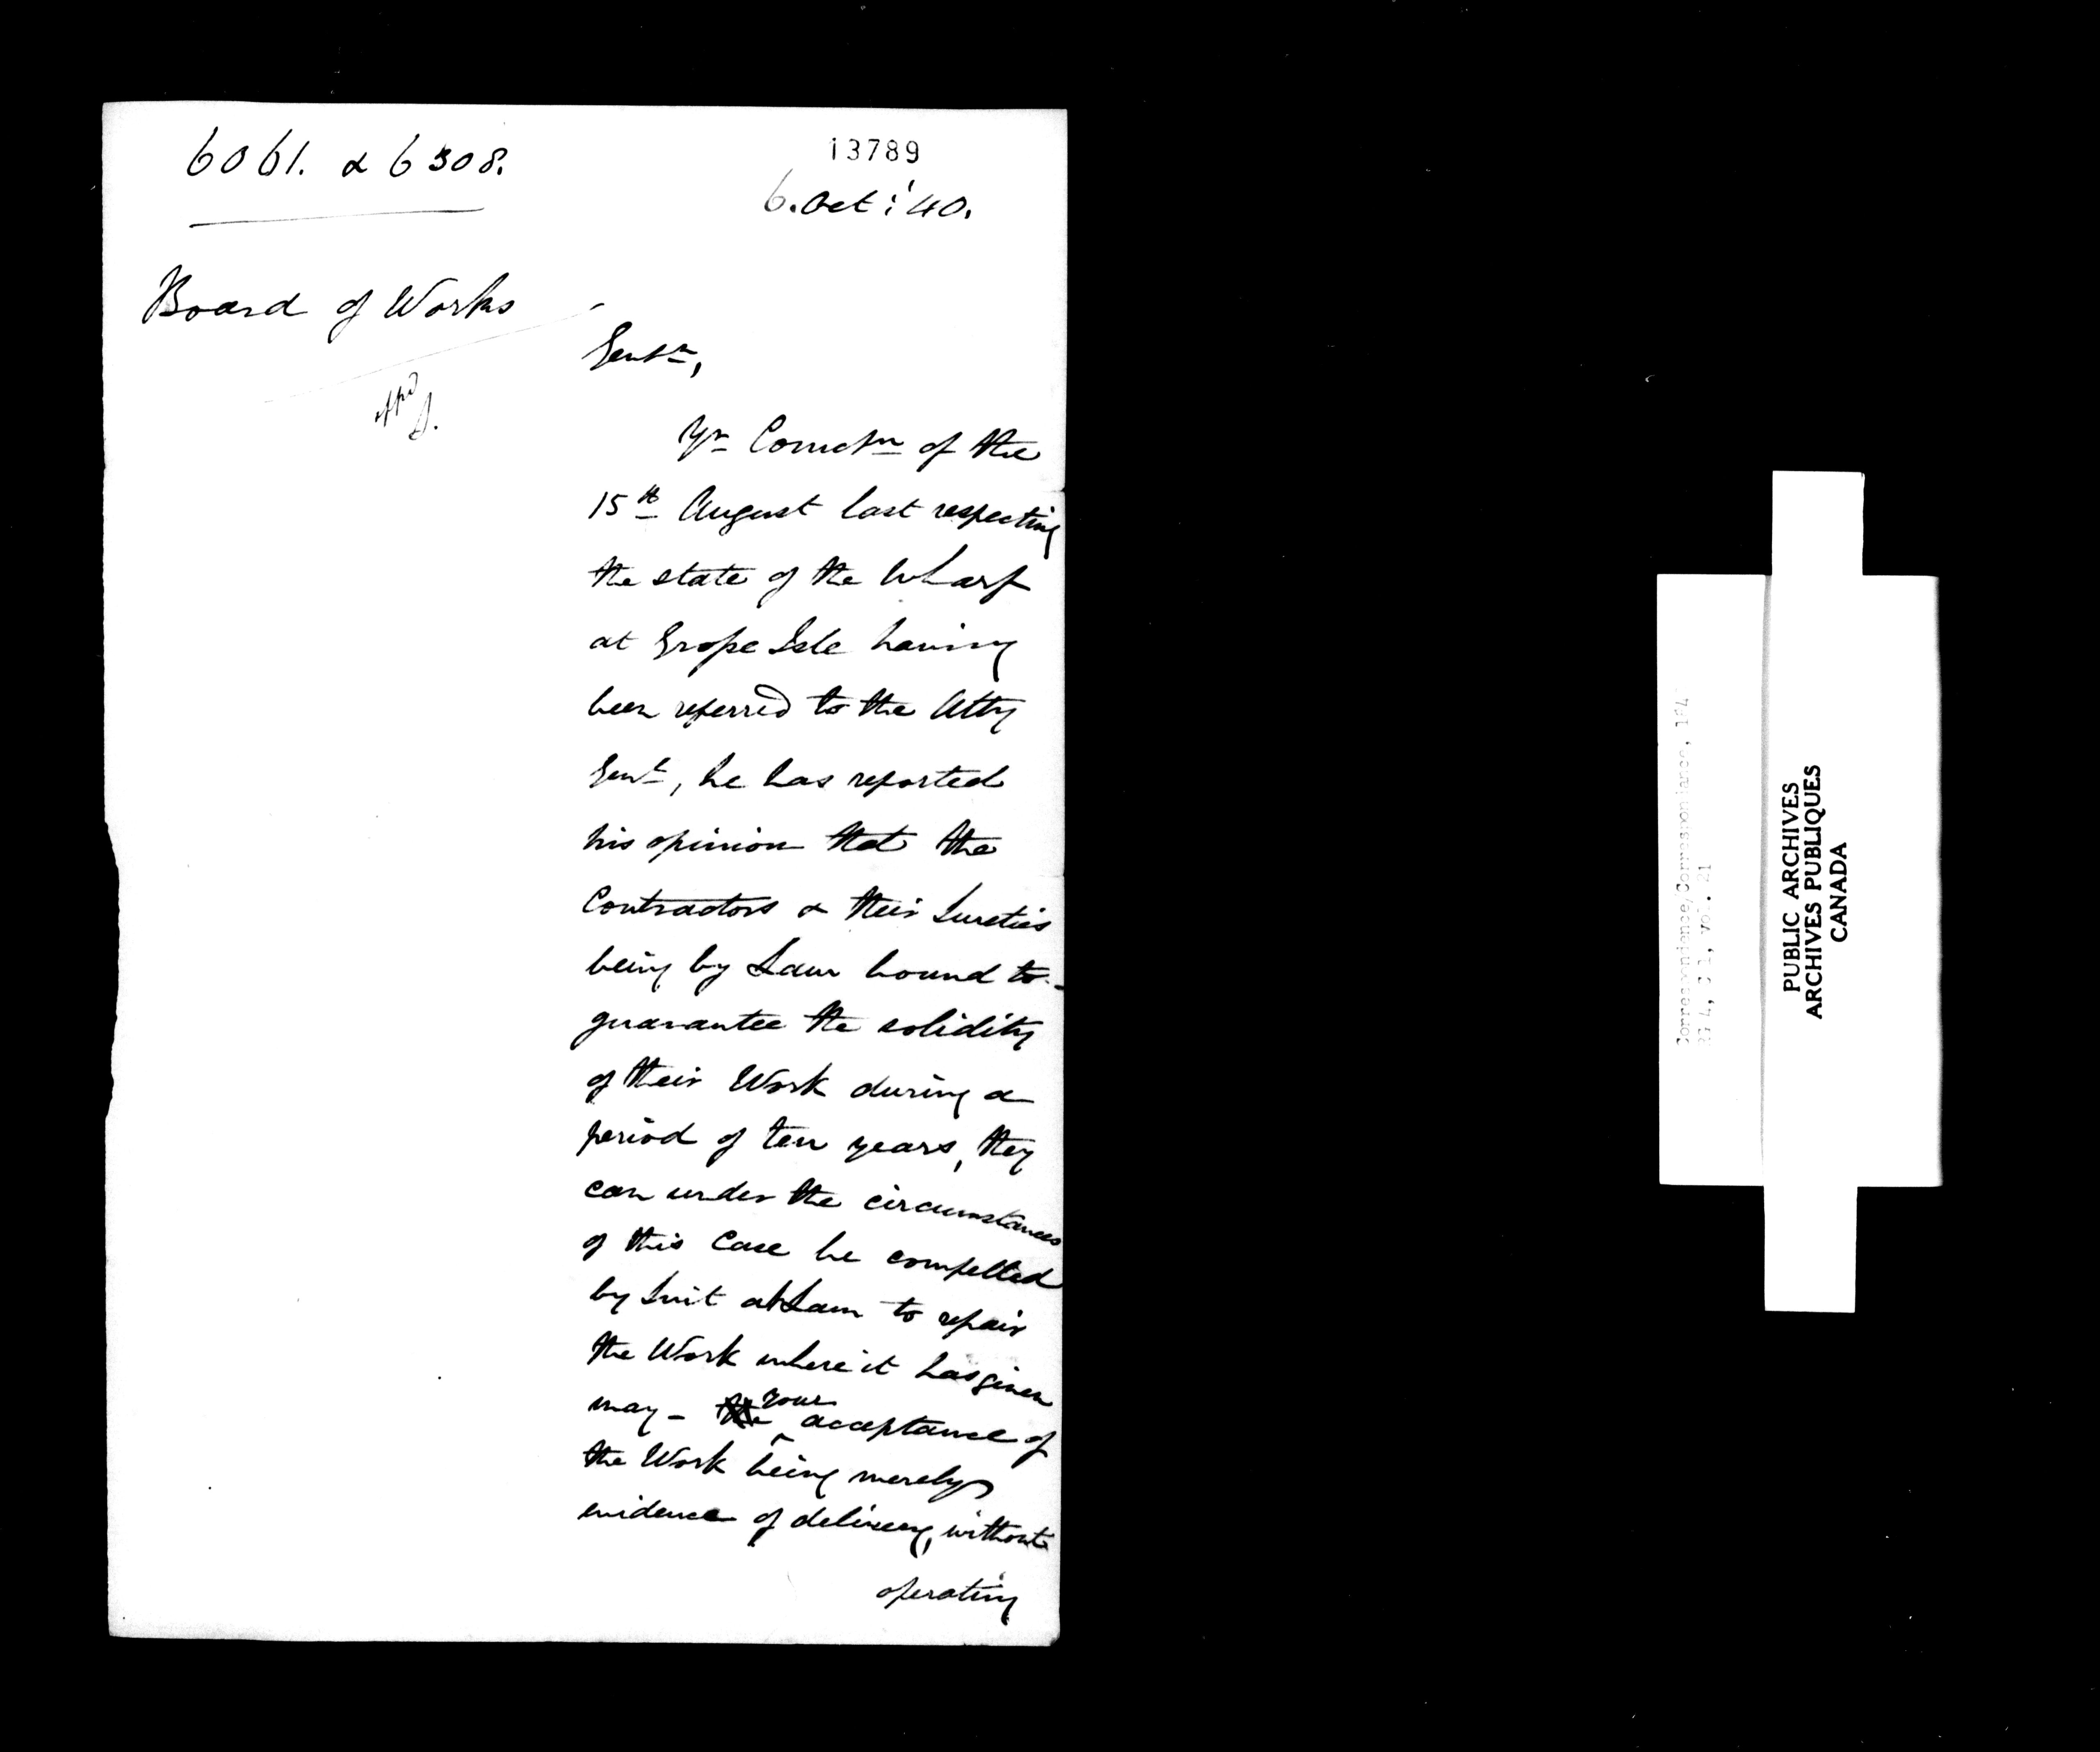 6061. & 6308.
13789
6. Oct: '40.
Board of Works
Appd
Gentn,
Yr Comctn of the
15th August last respecting
the state of the Wharf
at Grosse Isle having
been referred to the Atty
Genl, he has reported
his opinion that the
Contractors & their Sureties
being by Law bound to
guarantee the solidity
of their Work during a
period of ten years, they
can under the circumstances
of this Case be compelled
by Suit at Law to repair
the Work where it has given
way - the your acceptance of
the Work being merely
evidence of delivery, without
operating
Correspondence/Correspondance,
RG 4, C 1, vol. 21
PUBLIC ARCHIVES
ARCHIVES PUBLIQUES
CANADA